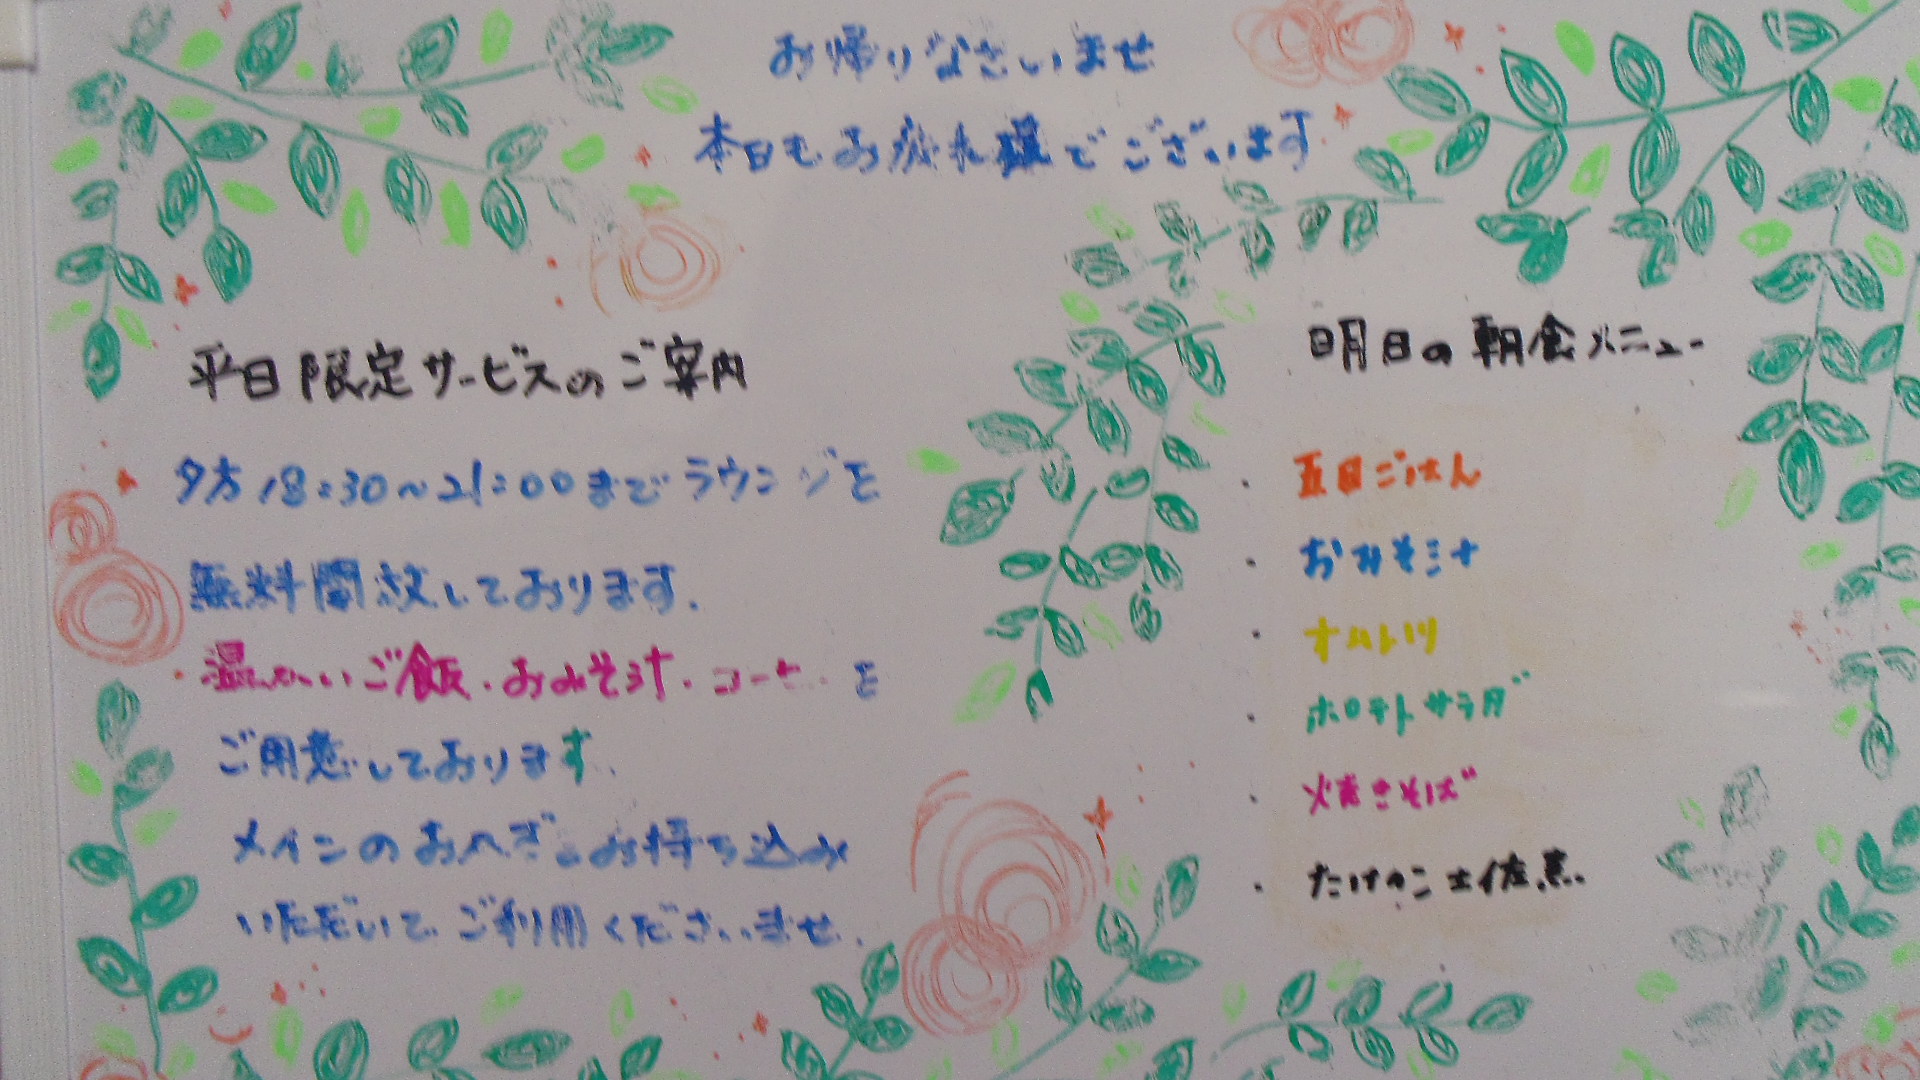 お帰りなさいませ
本日もお疲れ様でございます
平日限定サービスのご案内
夕方18:30~21:00までラウンジを
無料開放しております.
温かいご飯.おみそ汁.コーヒーを
ご用意しております.
メインのおかずをお持ち込み
いただいてご利用くださいませ.
明日の朝食メニュー
・五目ごはん
・おみそ汁
・オムレツ
・ポテトサラダ
・焼きそば
・たけのこ土佐煮